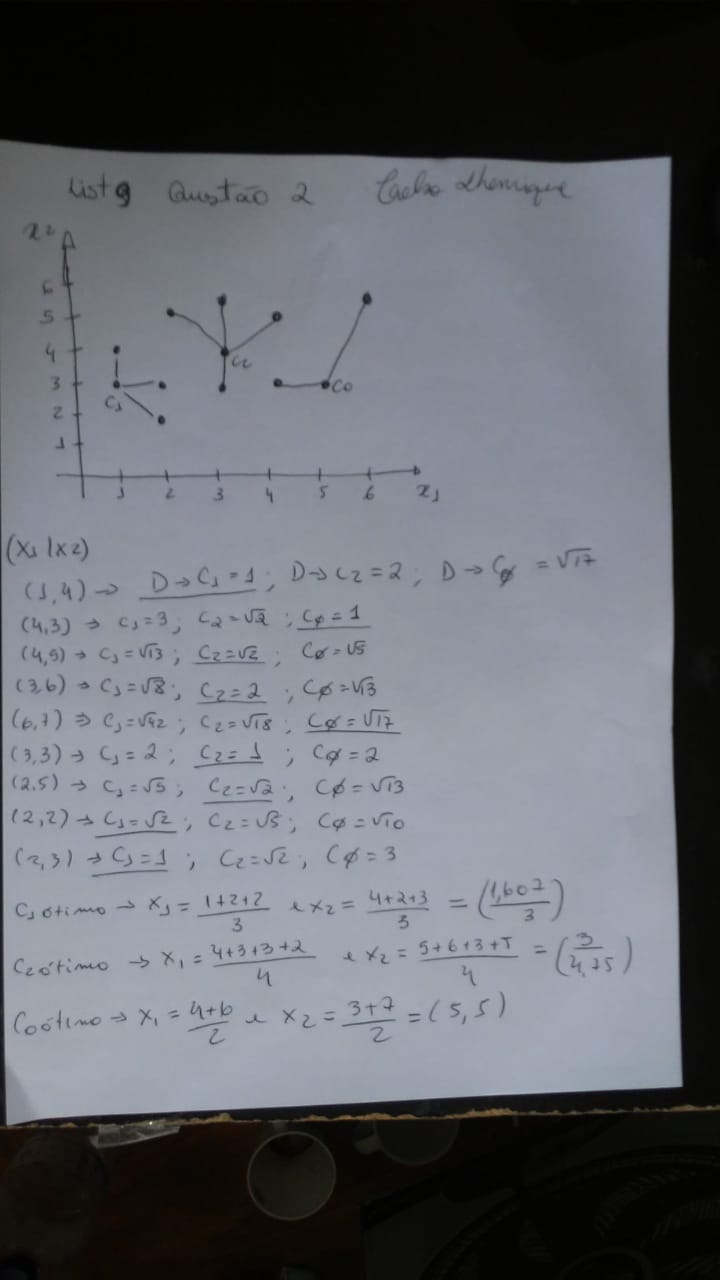 List 9 Questão 2
x2
6
5
4
3
2
1
C2
C0
C1
1 2 3 4 5 6 x1
(x1 | x2)
(1,4) → D→C1=1; D→C2=2; D→C∅ =√17
(4,3) → C1=3; C2=√2; C∅=1
(4,5) → C1=√13; C2=√2; C∅=√5
(3,6) → C1=√8; C2=2; C∅=√13
(6,7) ⇒ C1=√42; C2=√18; C∅=√17
(3,3) → C1=2; C2=1; C∅=2
(2,5) → C1=√5; C2=√2; C∅=√13
(2,2) → C1=√2; C2=√5; C∅=√10
(2,3) → C1=1; C2=√2, C∅=3
C1 ótimo → x1 = (1+2+2)/3 e x2 = (4+2+3)/3 = (1,607/3)
C2 ótimo → x1 = (4+3+3+2)/4 e x2 = (5+6+3+5)/4 = (3/4,75)
C0 ótimo → x1 = (4+6)/2 e x2 = (3+7)/2 = (5,5)